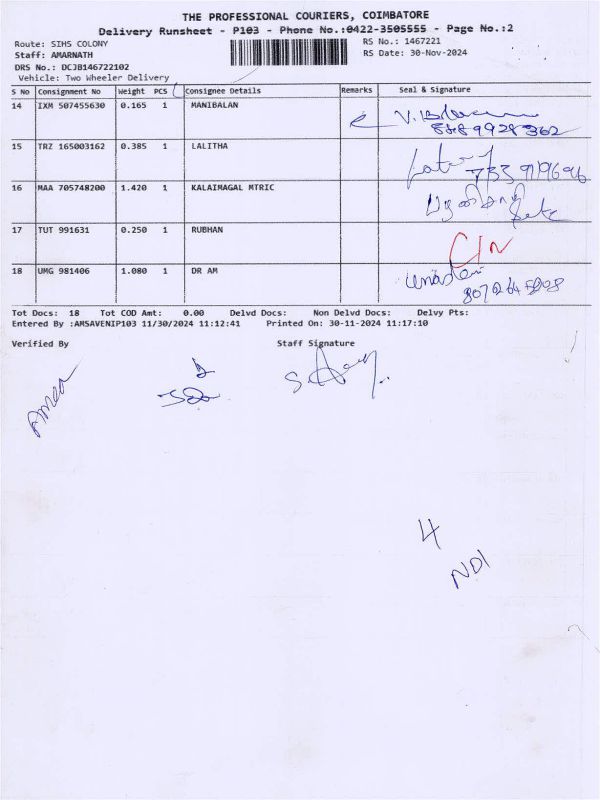 THE PROFESSIONAL COURIERS, COIMBATORE
Delivery Runsheet - P103 - Phone No.:0422-3505555 - Page No.:2
Route: SIHS COLONY
RS No.: 1467221
Staff: AMARNATH
RS Date: 30-Nov-2024
DRS No.: DCJB146722102
Vehicle: Two Wheeler Delivery
S No Consignment No Weight PCS Consignee Details Remarks Seal & Signature
14 IXM 507455630 0.165 1 MANIBALAN
15 TRZ 165003162 0.385 1 LALITHA
16 MAA 705748200 1.420 1 KALAIMAGAL MTRIC
17 TUT 991631 0.250 1 RUBHAN
18 UMG 981406 1.080 1 DR AM
Tot Docs: 18 Tot COD Amt: 0.00 Delvd Docs: Non Delvd Docs: Delvy Pts:
Entered By :AMSAVENIP103 11/30/2024 11:12:41 Printed On: 30-11-2024 11:17:10
Verified By Staff Signature
4
NDI